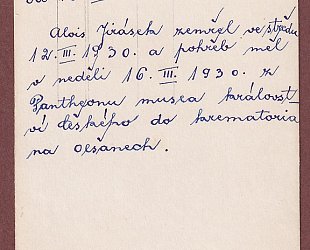 Alois Jirásek zemřel ve středu
12. III. 1930. a pohřeb měl
v neděli 16. III. 1930. z
Pantheonu musea královst-
ví českého do krematoria
na Olšanech.